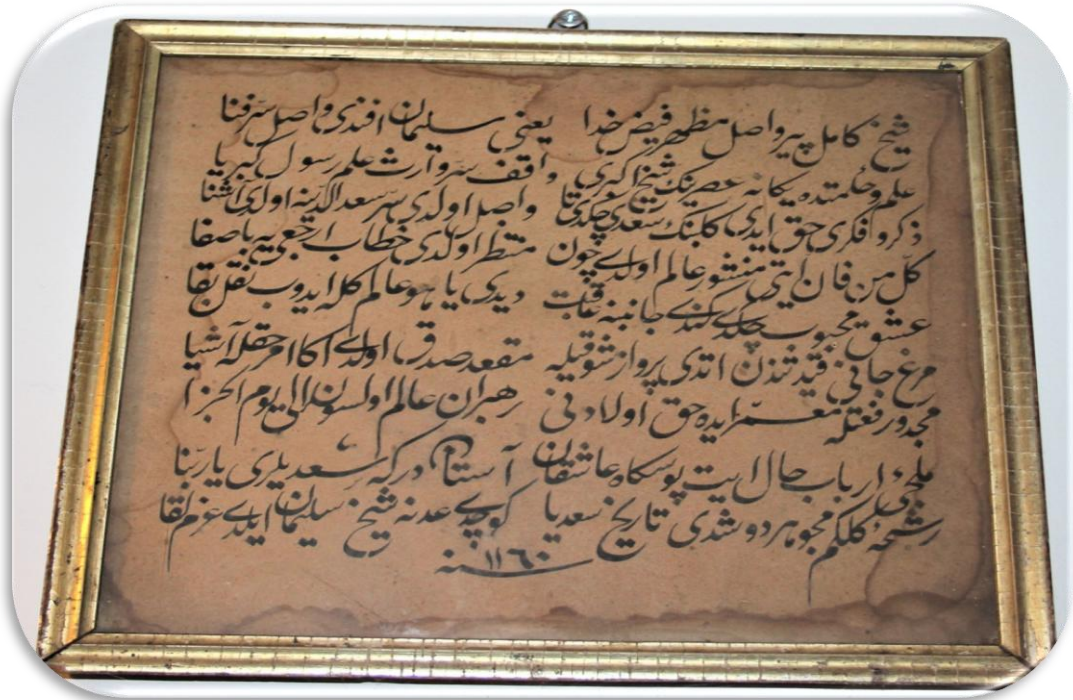 شيخ كامل پير واصل مظهر فيض خدا يعنى سليمان افندى واصل سرّ فنا
علم و حلمنده يكانه عصرينك شيخ اكبرى واقف سرّ و وارث علم رسول كبريا
ذكر و فكرى حق ايدى كلبنك سعدى چكدى تا واصل اولدى سرّ سعد الدّينه اولدى آشنا
كلّ من فان ايتى منشور عالم اولدى چون منتظر اولدى خطاب ارجعى يه باصفا
عشق محبوب چكدى كندى جانبنه عاقبت ديدى يا هو عالم كله ايدوب نقل بقا
مرغ جانى قيد تندن اتدى پرواز شوقيله مقعد صدق اولدى آكا امر حقله آشيا
مجد و رفعتله معمّر ايده حق اولادنى رهبران عالم اولسونلر الى يوم الجزا
ملجئ ارباب حال ايت پوسكاه عاشقان آستان دركه سعديلرى يا ربّنا
رشحۀ كلكم مجوهر دوشدى تاريخ سعديا كوچدى عدنه شيخ سليمان ايدى عزم لقا
سنه ١١٦٠